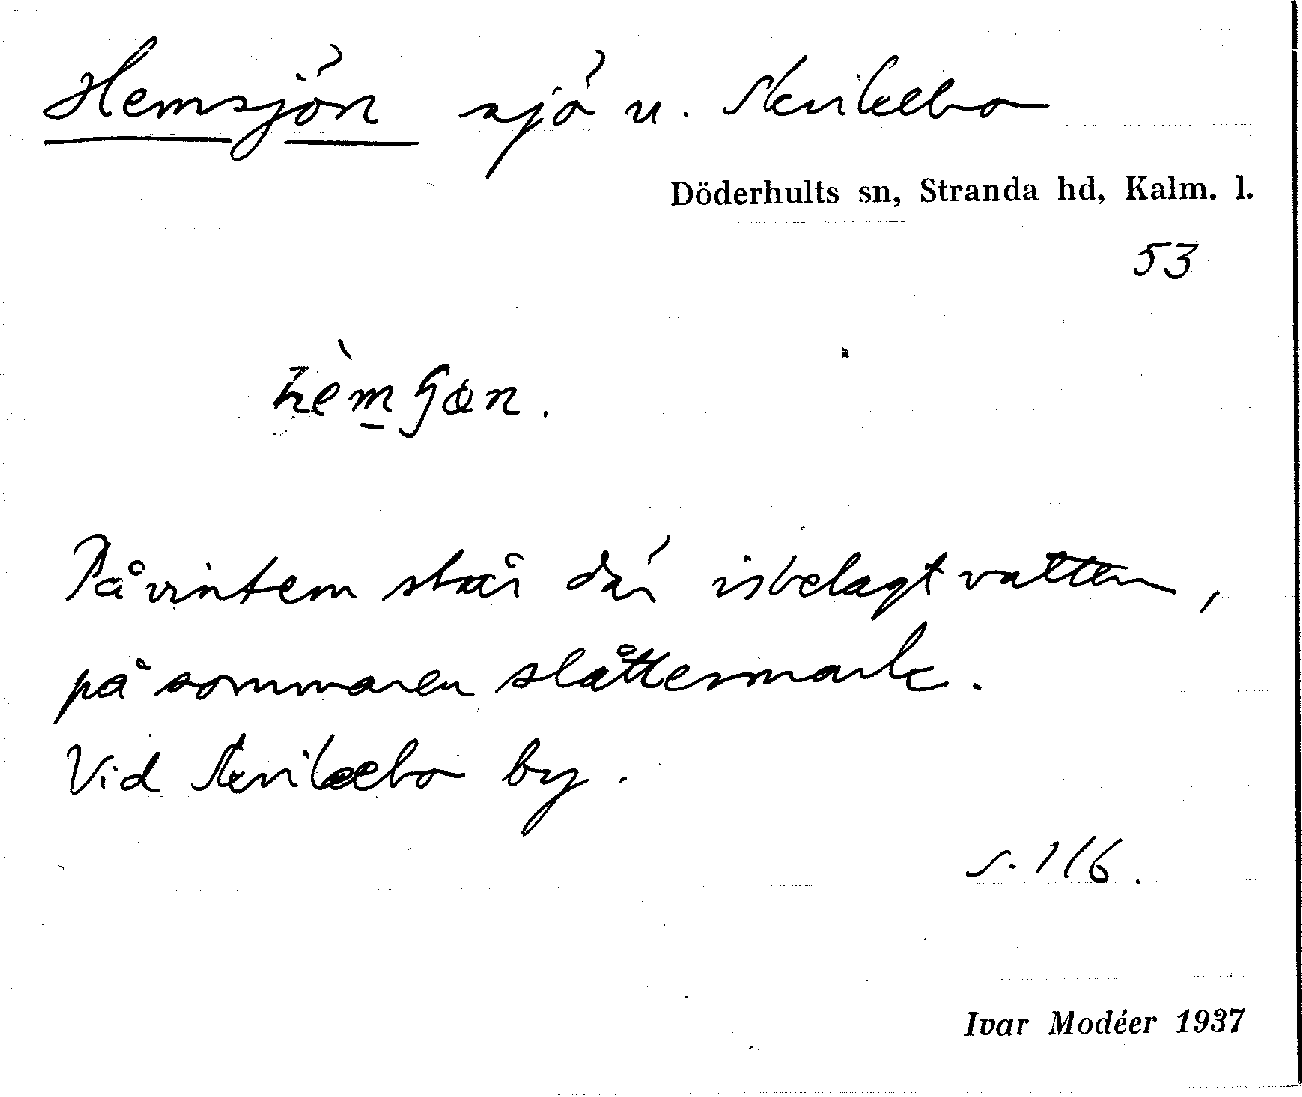 Hemsjön sjö u. Skrikebo
Döderhults sn, Stranda hd, Kalm. l.
53
På vintern står där isbelagt vatten,
på sommaren slåttermark.
Vid Skrikebo by.
s. 116.
Ivar Modéer 1937